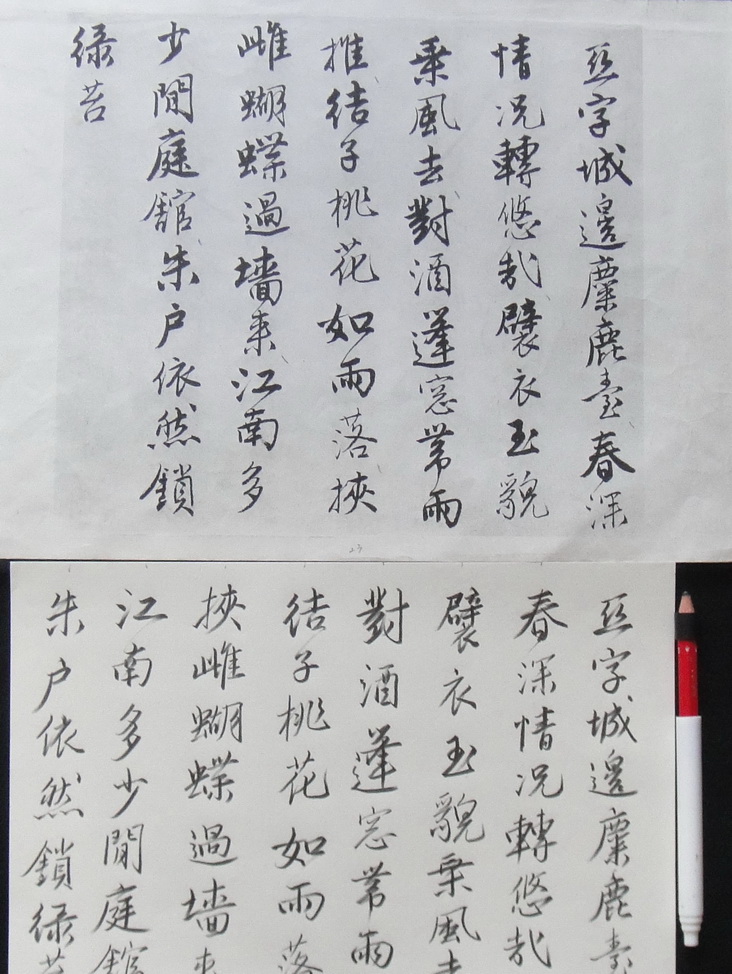 亞字城邊麋鹿臺春深
情况轉悠哉襞衣玉貌
乘風去對酒蓬窓帶雨
推結子桃花如雨落挾
雌蝴蝶過墻来江南多
少閒庭館朱户依然鎖
緑苔
亞字城邊麋鹿臺
春深情况轉悠哉
襞衣玉貌乘風去
對酒蓬窓帶雨
結子桃花如雨落
挾雌蝴蝶過墻来
江南多少閒庭館
朱户依然鎖緑苔